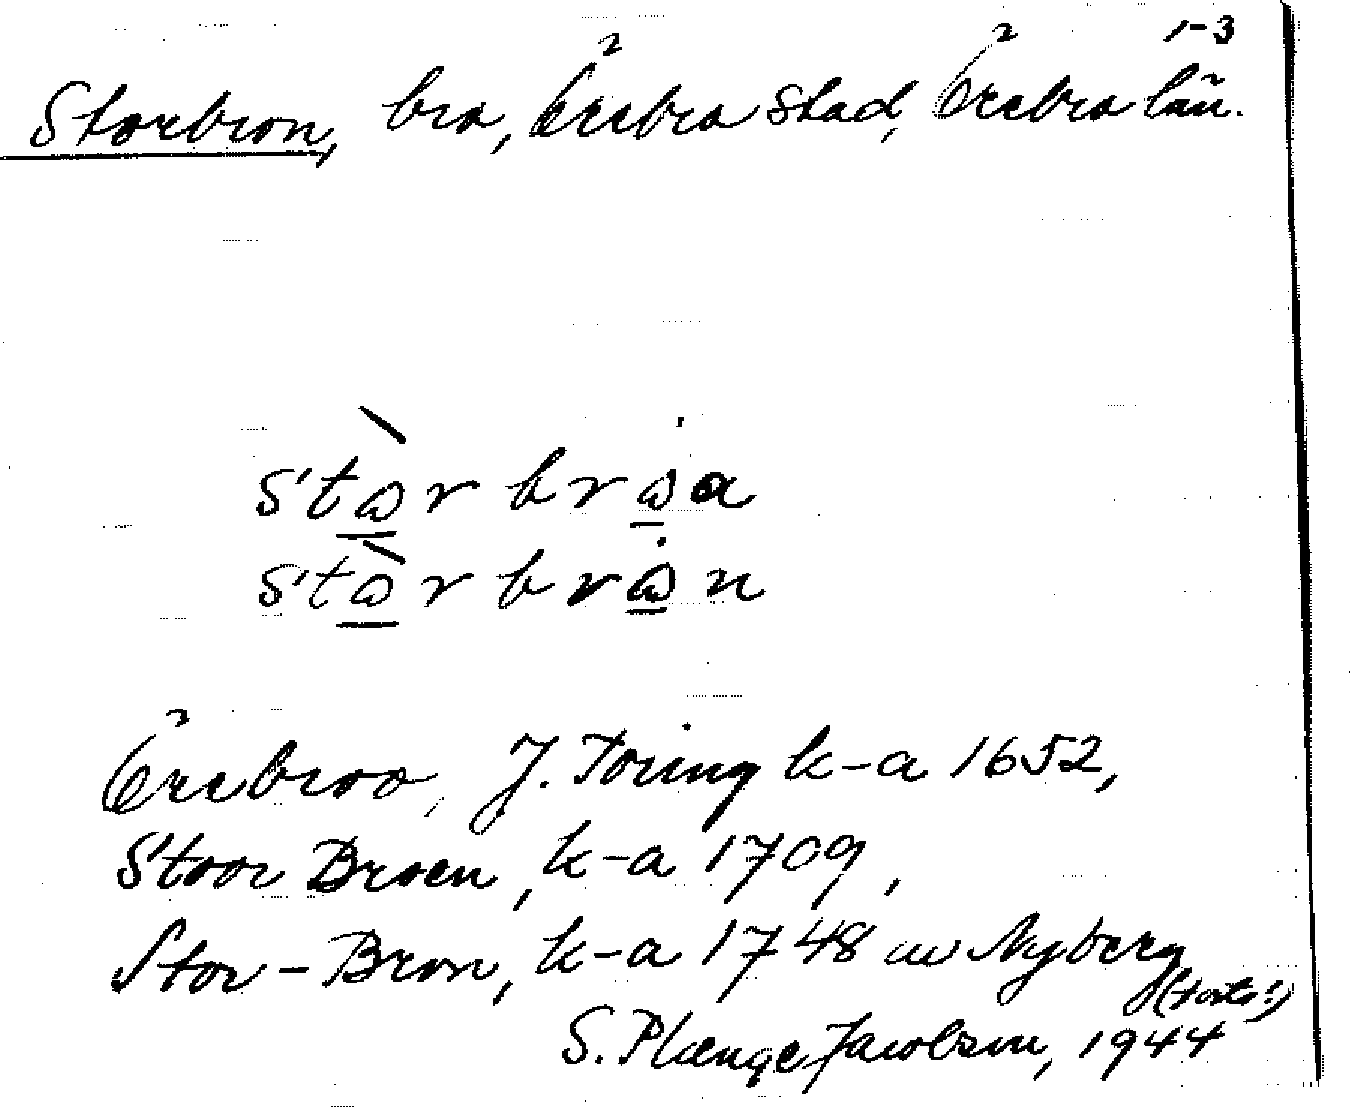 1-3
Storbron, bro, Örebro stad, Örebro län.
stωr brωa
stωr brωn
Örebroo, J. Toring k-a 1652,
Stoor Broen, k-a 1709,
Stor-Bron, k-a 1748 av Nyberg
(forts!)
S. Plænge Jacobson, 1944